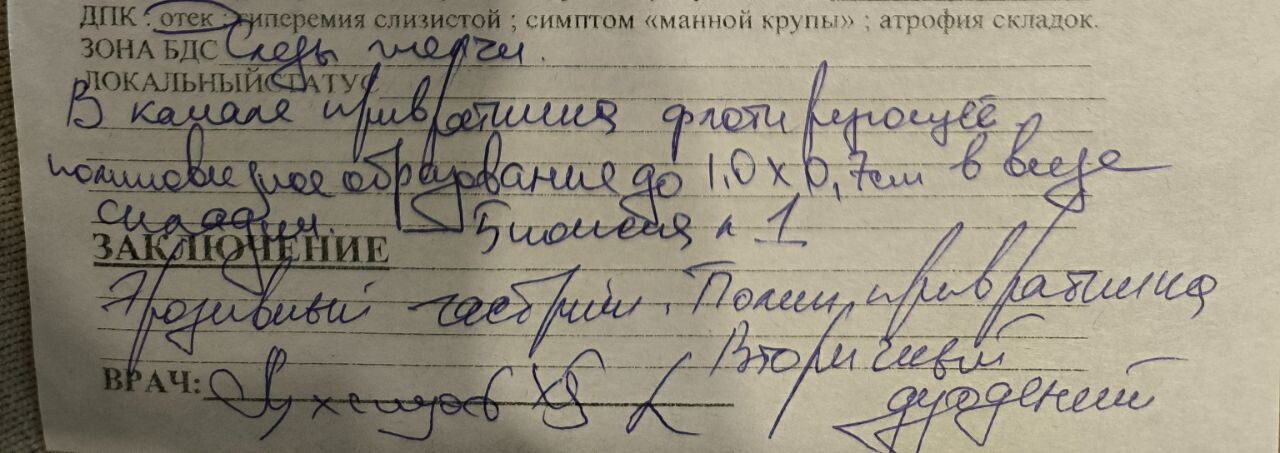 ДПК : отек ; гиперемия слизистой ; симптом «манной крупы» ; атрофия складок.
ЗОНА БДС Следы желчи.
ЛОКАЛЬНЫЙ СТАТУС
В канале привратника флотирующее
полиповидное образование до 1,0 х 0,7см в виде
складки. Биопсия n 1
ЗАКЛЮЧЕНИЕ
Эрозивный гастрит. Полип привратника
Вторичный
ВРАЧ:
дуоденит